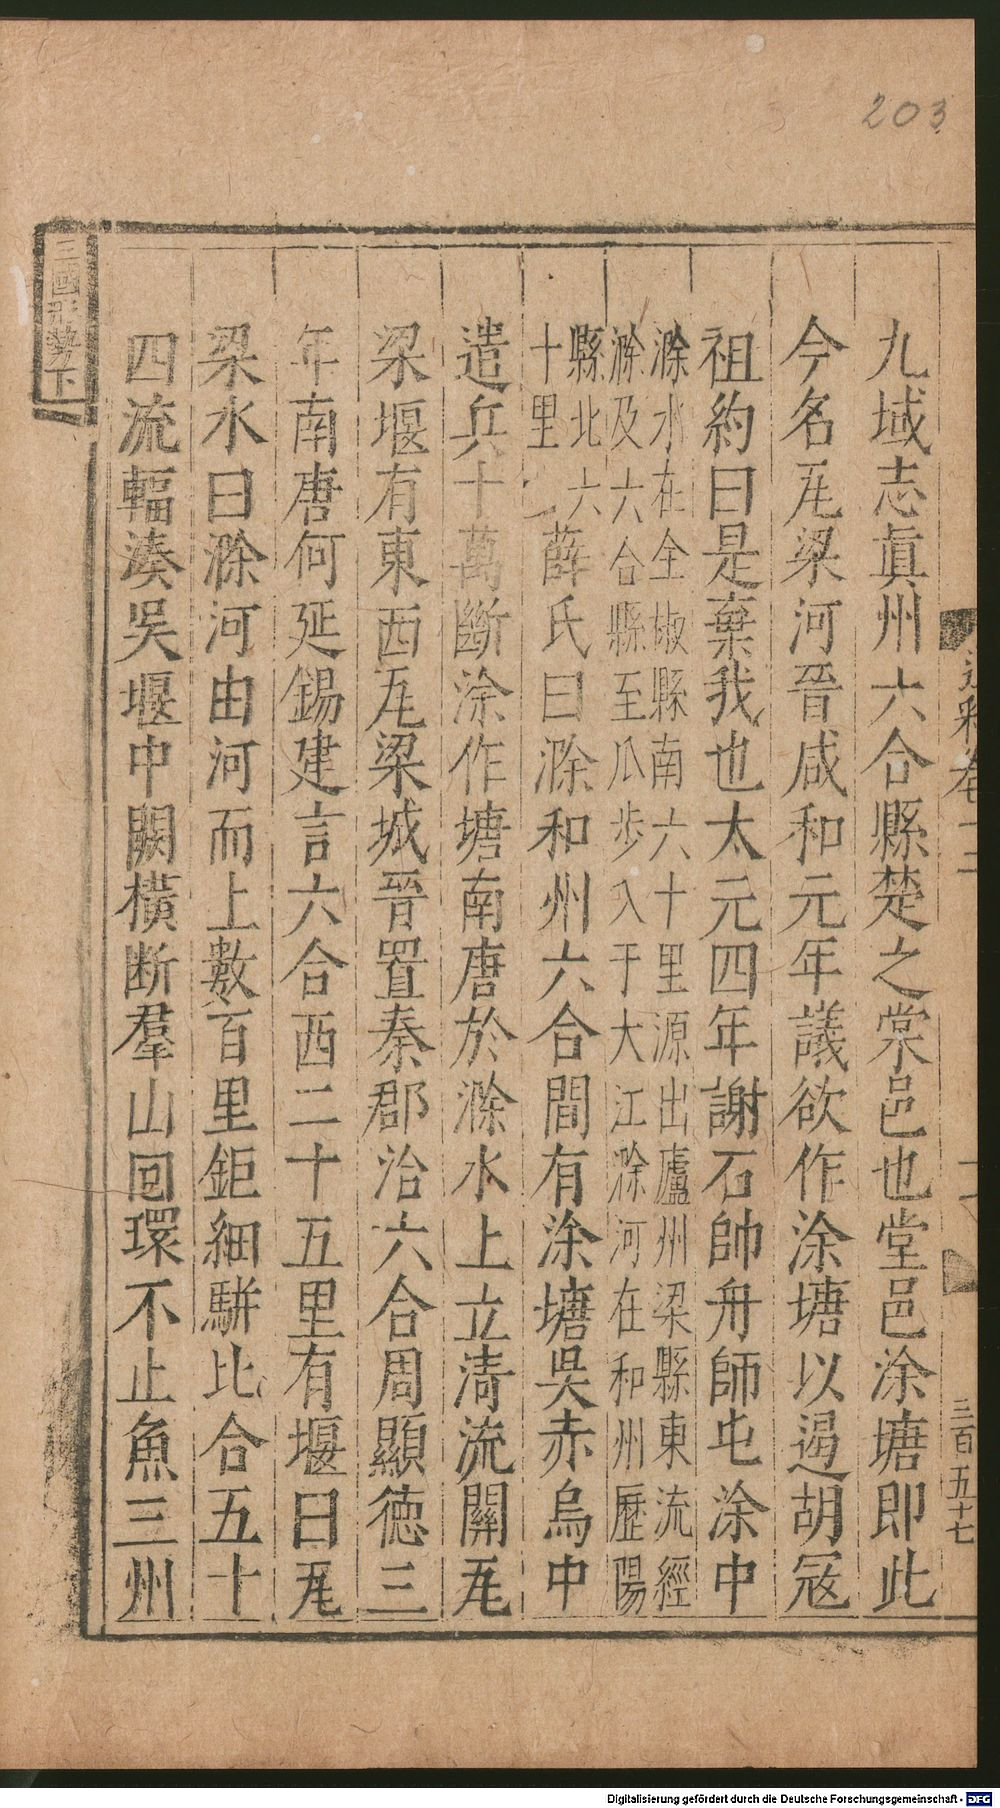 203
九域志眞州六合縣楚之棠邑也堂邑涂塘即此
今名瓦梁河晉咸和元年議欲作涂塘以遏胡冦
祖約曰是棄我也太元四年謝石帥舟師屯涂中
滁水在全椒縣南六十里源出廬州梁縣東流經
滁及六合縣至瓜歩入于大江滁河在和州歷陽
縣北六
十里
薛氏曰滁和州六合間有涂塘吳赤烏中
遣兵十萬斷涂作塘南唐於滁水上立淸流關瓦
梁堰有東西瓦梁城晉置秦郡治六合周顯德三
年南唐何延錫建言六合西二十五里有堰曰瓦
梁水曰滁河由河而上數百里鉅細駢比合五十
四流輻湊吳堰中闕橫断羣山回環不止魚三州
三國形勢下
通釋卷十二
三百五十七
Digitalisierung gefördert durch die Deutsche Forschungsgemeinschaft - DFG